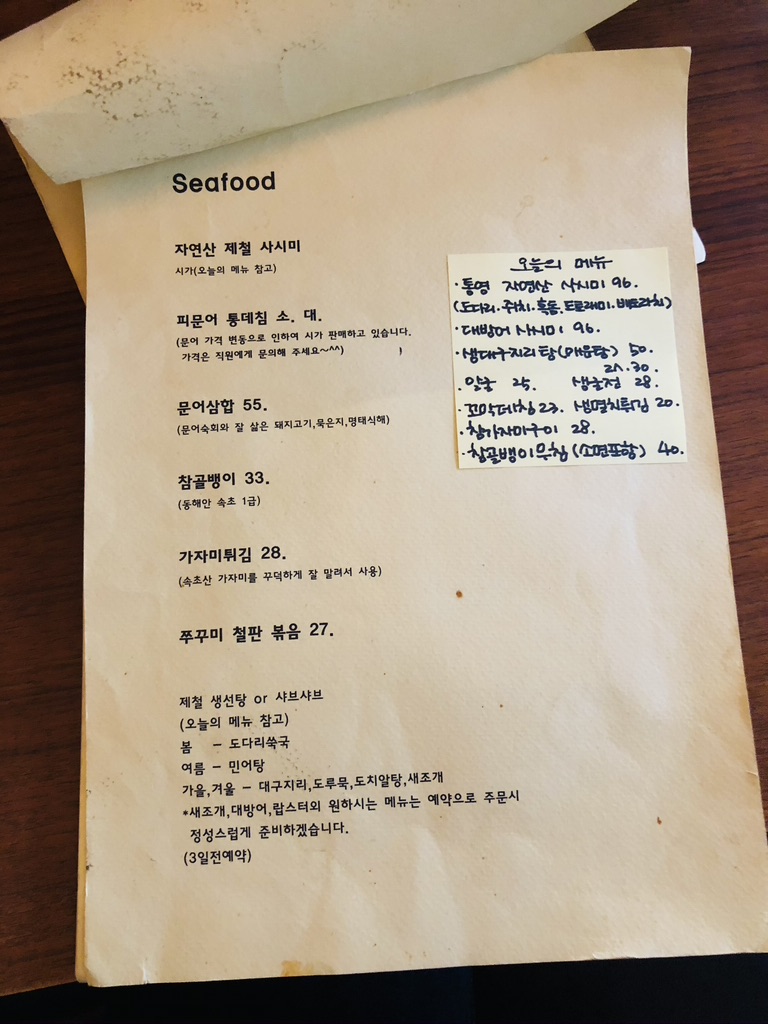 Seafood
자연산 제철 사시미
시가(오늘의 메뉴 참고)
피문어 통데침 소. 대.
(문어 가격 변동으로 인하여 시가 판매하고 있습니다.
가격은 직원에게 문의해 주세요~^^)
문어삼합 55.
(문어숙회와 잘 삶은 돼지고기,묵은지,명태식해)
참골뱅이 33.
(동해안 속초 1급)
가자미튀김 28.
(속초산 가자미를 꾸덕하게 잘 말려서 사용)
쭈꾸미 철판 볶음 27.
제철 생선탕 or 샤브샤브
(오늘의 메뉴 참고)
봄 - 도다리쑥국
여름 - 민어탕
가을,겨울 - 대구지리,도루묵,도치알탕,새조개
*새조개,대방어,랍스터외 원하시는 메뉴는 예약으로 주문시
정성스럽게 준비하겠습니다.
(3일전예약)
오늘의 메뉴
·통영 자연산 사시미 96.
(도다리.쥐치.흑돔.도로래미.뱅에돔)
·대방어 사시미 96.
·생대구지리탕(매운탕) 50.
·굴 25. 생굴전 28.
·꼬막데침 23. 생멸치튀김 20.
·참가자미구이 28.
·참골뱅이무침(소면포함) 40.